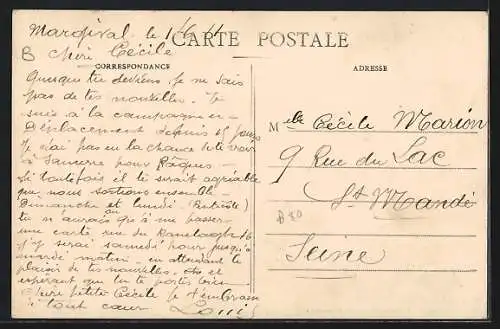 Margival le 1/6 11
CARTE POSTALE
B Chère Cécile
CORRESPONDANCE
ADRESSE
Quesque tu deviens. Je ne sais
pas de tes nouvelles. Je
suis à la campagne en
Déplacement depuis 15 jours
Je n'ai pas eu la chance de te voir
à Sancerre pour Pâques
Si toutefois il te serait agréable
que nous sortions ensemble
Dimanche et lundi (Pentecôte)
tu n'aurais qu'à me passer
une carte rue du Ranelagh 16
j'y serai samedi pour jusqu'à
mardi matin. en attendant le
plaisir de tes nouvelles et
espérant que tu te portes bien
petite Cécile je t'embrasse
à tout cœur Louis
Melle Cécile Marion
9 Rue du Lac
St Mandé
B 80
Seine